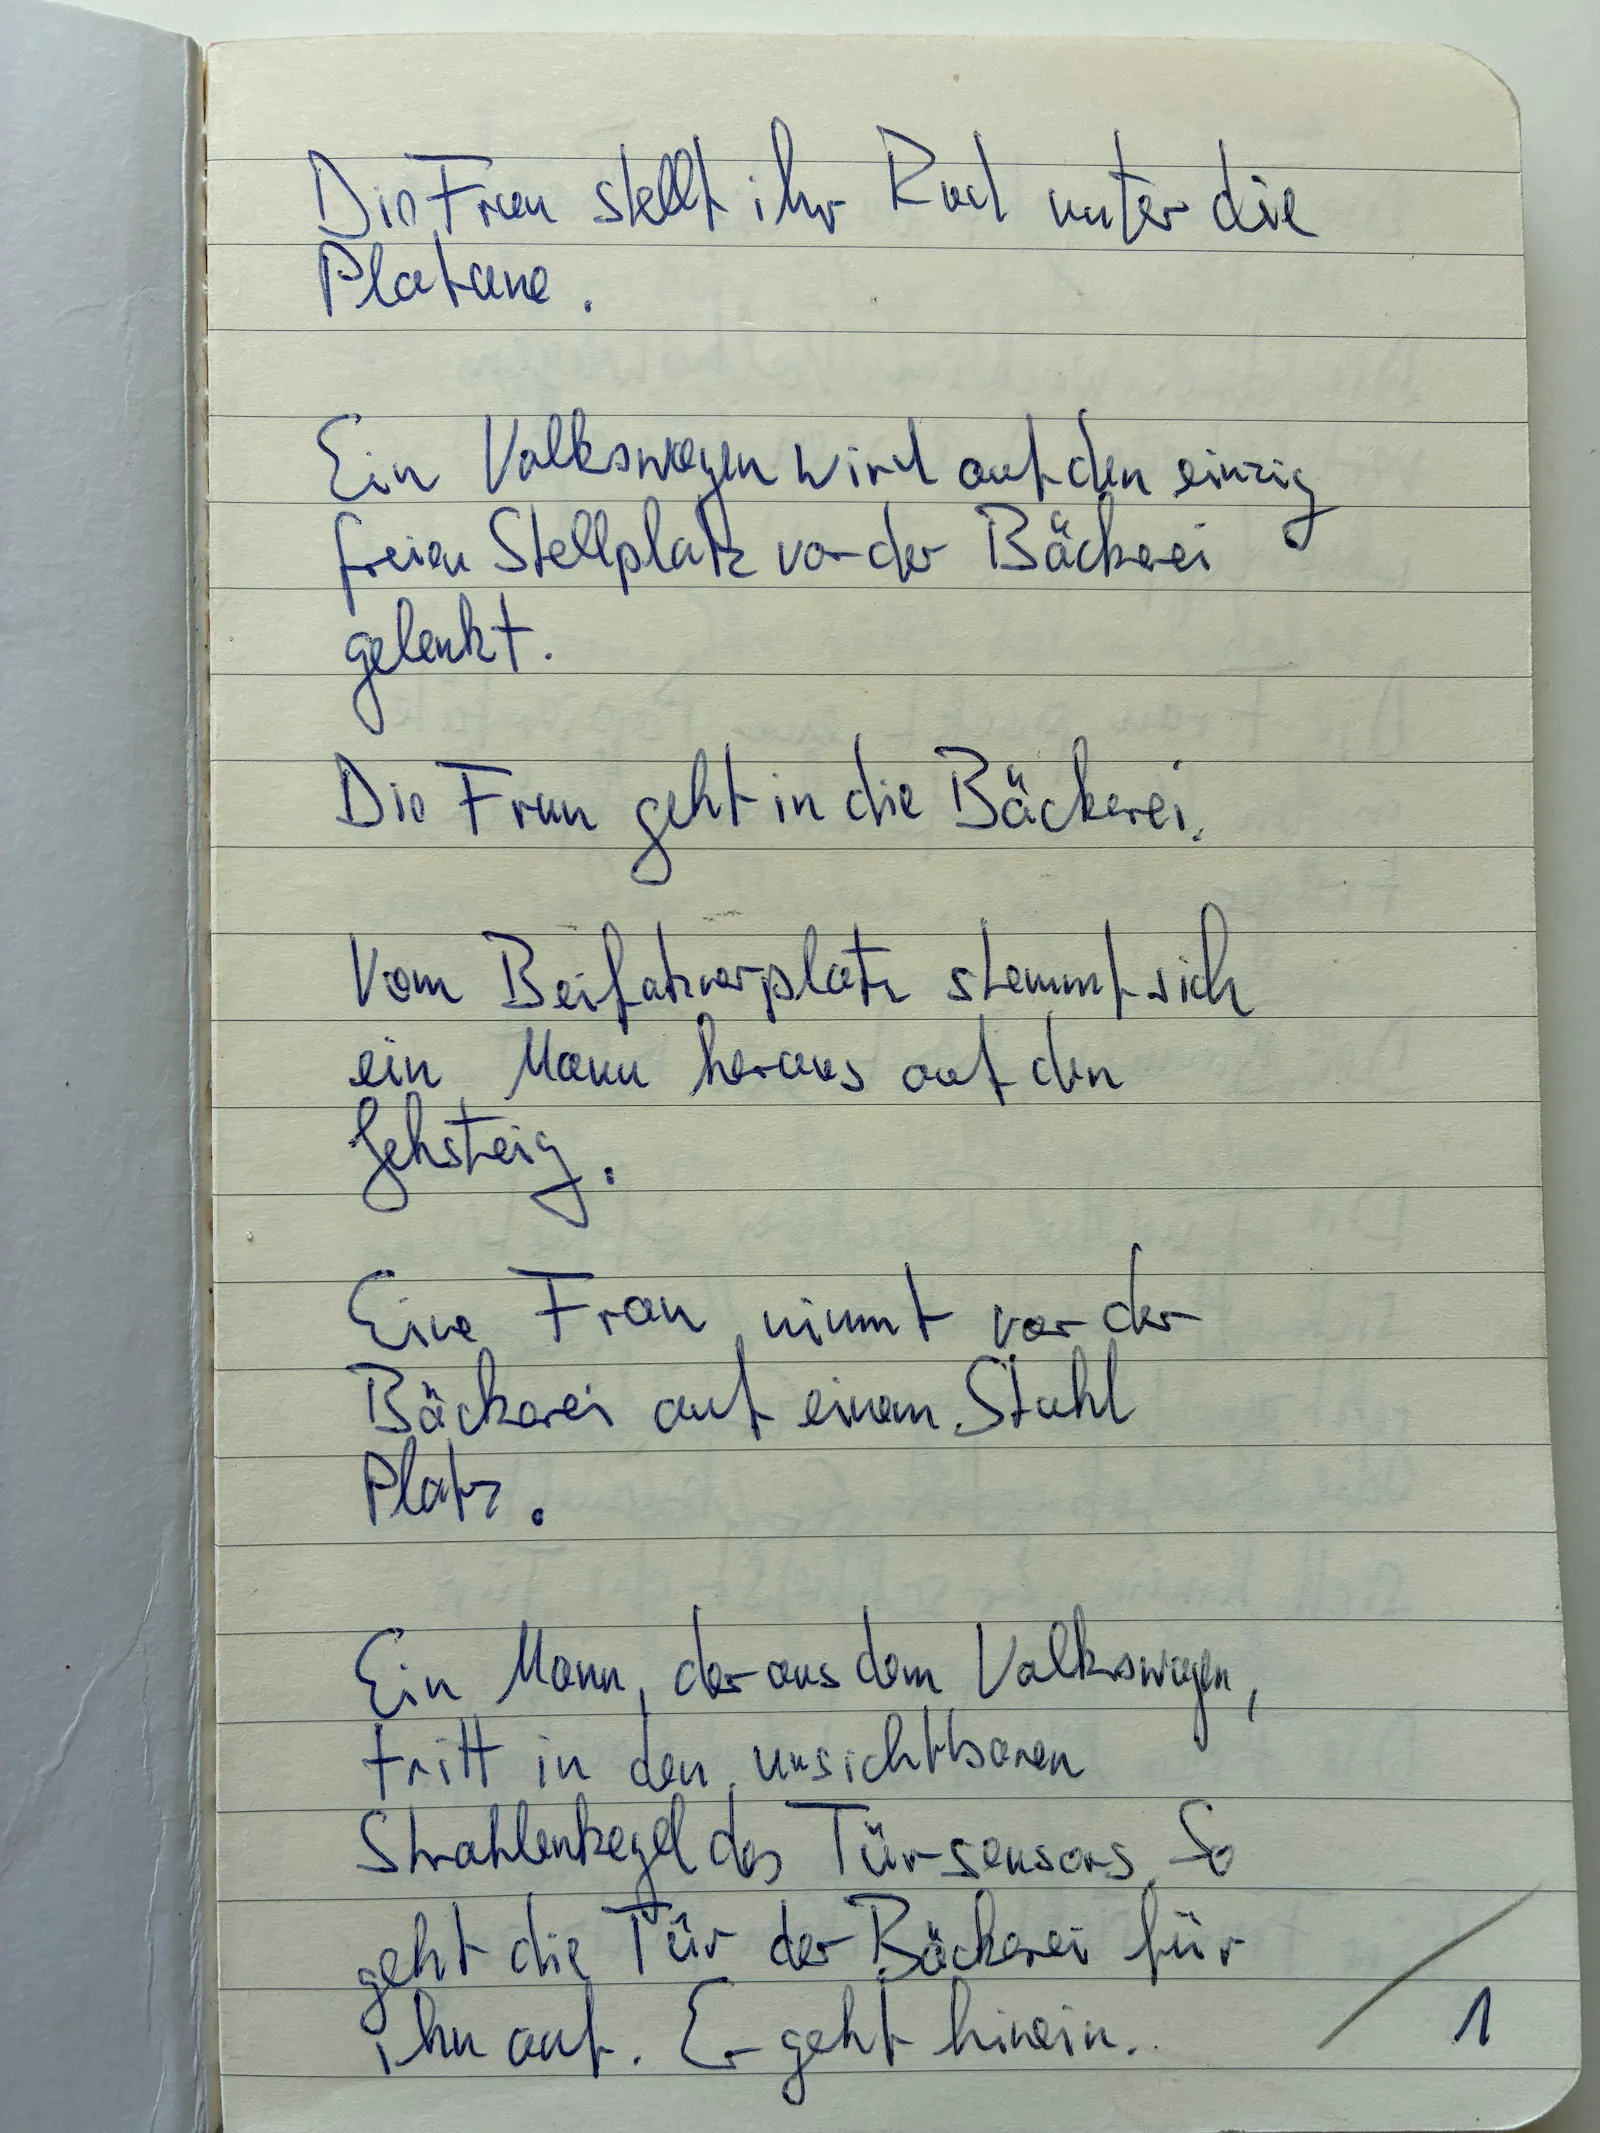 Die Frau stellt ihr Rad unter die
Platane.
Ein Volkswagen wird auf den einzig
freien Stellplatz vor der Bäckerei
gelenkt.
Die Frau geht in die Bäckerei.
Vom Beifahrerplatz stemmt sich
ein Mann heraus auf den
Gehsteig.
Eine Frau nimmt vor der
Bäckerei auf einem Stuhl
Platz.
Ein Mann, der aus dem Volkswagen,
tritt in den unsichtbaren
Strahlenkegel des Türsensors. So
geht die Tür der Bäckerei für
ihn auf. Er geht hinein.
1